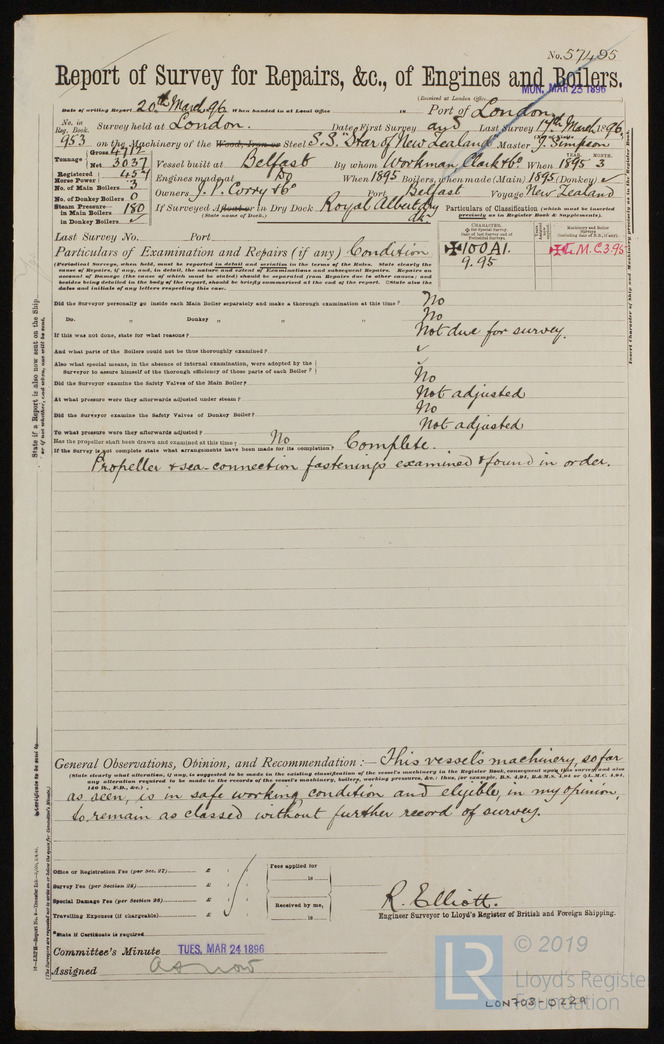 No. 57495
Report of Survey for Repairs, &c., of Engines and Boilers.
MON. MAR 23 1896
(Received at London Office
Date of writing Report 20th March 96 When handed in at Local Office 18 Port of London
No. in Reg. Book. Survey held at London. Date, First Survey and Last Survey 17th March 1896
953 on the Machinery of the Wood, Iron or Steel S.S. "Star of New Zealand" Master J. Simpson
Tonnage Gross 4712
Net 3037 Vessel built at Belfast By whom Workman, Clark & Co When 1895 3
YEAR. MONTH.
Registered Horse Power 454 Engines made at Do When 1895 Boilers, when made (Main) 1895 (Donkey) ✓
No. of Main Boilers 3 Owners J. P. Corry & Co Port Belfast Voyage New Zealand
No. of Donkey Boilers 0
Steam Pressure in Main Boilers 180 If Surveyed Afloat or in Dry Dock Royal Albert dry dk
in Donkey Boilers ✓ (State name of Dock.)
Particulars of Classification (which must be inserted precisely as in Register Book & Supplements).
Last Survey No. Port
✠100A1. ✠L.M.C. 3.95
9.95
Particulars of Examination and Repairs (if any) Condition
(Periodical Surveys, when held, must be reported in detail and seriatim in the terms of the Rules. State clearly the
cause of Repairs, if any, and, in detail, the nature and extent of Examinations and subsequent Repairs. Repairs on
account of Damage (the cause of which must be stated) should be separated from Repairs due to other causes; and
besides being detailed in the body of the report, should be briefly summarised at the end of the report. State also the
dates and initials of any letters respecting this case.)
Did the Surveyor personally go inside each Main Boiler separately and make a thorough examination at this time? No
Do. " Donkey " " " No
If this was not done, state for what reasons? Not due for survey.
And what parts of the Boilers could not be thus thoroughly examined? ✓
Also what special means, in the absence of internal examination, were adopted by the
Surveyor to assure himself of the thorough efficiency of those parts of each Boiler? ✓
Did the Surveyor examine the Safety Valves of the Main Boiler? No
At what pressure were they afterwards adjusted under steam? Not adjusted
Did the Surveyor examine the Safety Valves of Donkey Boiler? No
To what pressure were they afterwards adjusted? Not adjusted
Has the propeller shaft been drawn and examined at this time? No
If the Survey is not complete state what arrangements have been made for its completion? Complete.
Propeller & sea-connection fastenings examined & found in order.
General Observations, Opinion, and Recommendation:— This vessel's machinery, so far
(State clearly what alteration, if any, is suggested to be made in the existing classification of the vessel's machinery in the Register Book, consequent upon this survey and also
any alteration required to be made in the records of the vessel's machinery, boilers, working pressures, &c.: thus, for example, B.S. 4,94, B.&M.S. 4,94 or L.M.C. 4,94,
140 lb., F.D., &c.)
as seen, is in safe working condition and eligible, in my opinion,
to remain as classed without further record of survey.
Office or Registration Fee (per Sec. 27) £
Fees applied for
18
Survey Fee (per Section 28) £
Special Damage Fee (per Section 28) £
Received by me,
18
Travelling Expenses (if chargeable) £
R. Elliott.
Engineer Surveyor to Lloyd's Register of British and Foreign Shipping.
*State if Certificate is required
Committee's Minute TUES. MAR 24 1896
Assigned as now
State if a Report is also now sent on the Ship
or if not whether, and when, one will be sent.
Insert Character of Ship and Machinery precisely as in the Register Book.
Certificate to be sent to
© 2019
LR Lloyd's Register
Foundation
LON708-0229